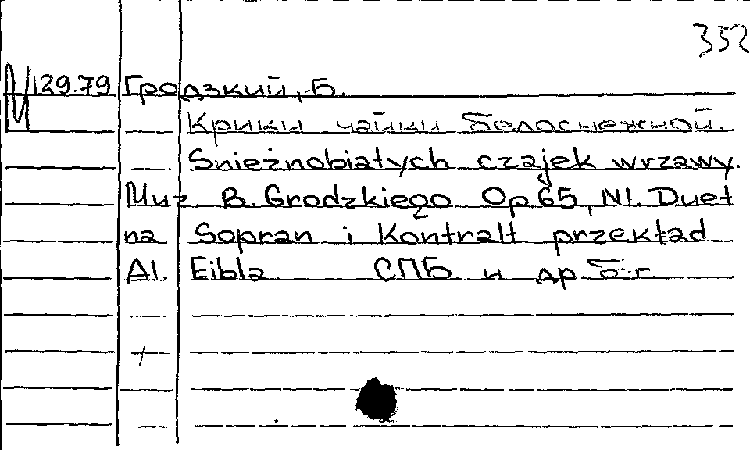 352
N 129.79 Гродзкий, Б.
Крики чайки белоснежной.
Śnieżnobiałych czajek wrzawy.
Muz B. Grodzkiego Op. 65, N1. Duet
na Sopran i Kontralt przekład
Al. Eibla СПБ и др б.г